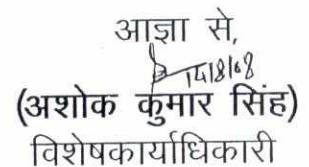 आज्ञा से,
14/8/08
(अशोक कुमार सिंह)
विशेषकार्याधिकारी